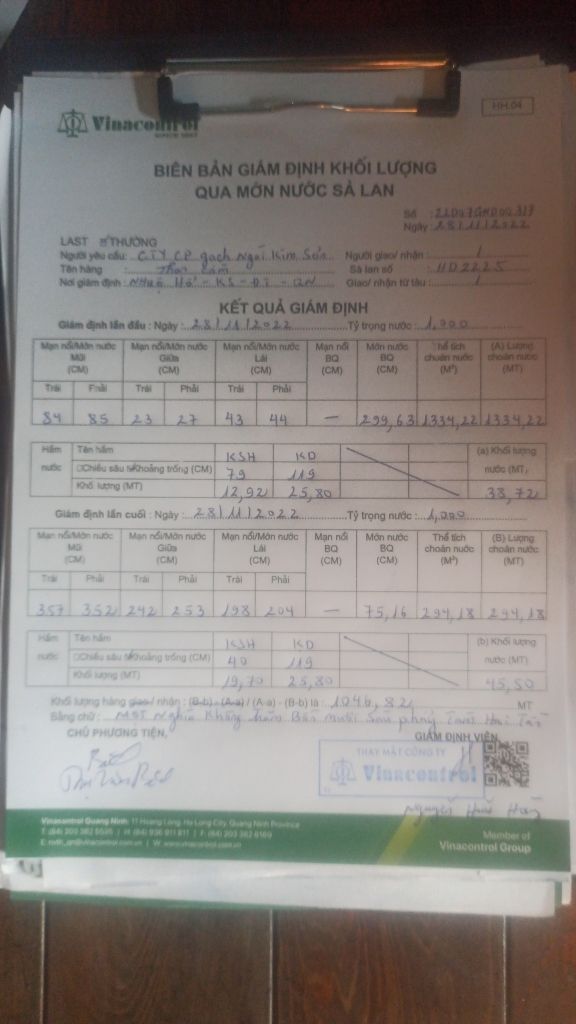 Vinacontrol
HH.04
BIÊN BẢN GIÁM ĐỊNH KHỐI LƯỢNG
QUA MỚN NƯỚC SÀ LAN
Số :
Ngày : 28/11/2022
LAST THƯỜNG
Người yêu cầu: CTY CP gạch Ngói Kim Sơn Người giao/ nhận : /
Tên hàng : Than cám Sà lan số : HD2225
Nơi giám định : KS - ĐT - QN Giao/ nhận từ tàu : /
KẾT QUẢ GIÁM ĐỊNH
Giám định lần đầu : Ngày : 28/11/2022 Tỷ trọng nước : 1,000
Mạn nổi/Mớn nước Mũi (CM) Mạn nổi/Mớn nước Giữa (CM) Mạn nổi/Mớn nước Lái (CM) Mạn nổi BQ (CM) Mớn nước BQ (CM) Thể tích choán nước (M³) (A) Lượng choán nước (MT)
Trái Phải Trái Phải Trái Phải
84 85 23 27 43 44 — 299,63 1334,22 1334,22
Hầm nước Tên hầm KSH KD (a) Khối lượng nước (MT)
Chiều sâu Khoảng trống (CM) 79 119
Khối lượng (MT) 12,92 25,80 38,72
Giám định lần cuối : Ngày : 28/11/2022 Tỷ trọng nước : 1,000
Mạn nổi/Mớn nước Mũi (CM) Mạn nổi/Mớn nước Giữa (CM) Mạn nổi/Mớn nước Lái (CM) Mạn nổi BQ (CM) Mớn nước BQ (CM) Thể tích choán nước (M³) (B) Lượng choán nước (MT)
Trái Phải Trái Phải Trái Phải
357 352 242 253 198 204 — 75,16 294,18 294,18
Hầm nước Tên hầm KSH KD (b) Khối lượng nước (MT)
Chiều sâu Khoảng trống (CM) 40 119
Khối lượng (MT) 19,70 25,80 45,50
Khối lượng hàng giao / nhận : (B-b) - (A-a) / (A-a) - (B-b) là : 1046,82 MT
Bằng chữ : Một Nghìn Không Trăm Bốn mươi Sáu phẩy Tám Hai Tấn
CHỦ PHƯƠNG TIỆN, GIÁM ĐỊNH VIÊN,
THAY MẶT CÔNG TY
Vinacontrol
Vinacontrol Quang Ninh: 11 Hoang Long, Ha Long City, Quang Ninh Province
Member of
Vinacontrol Group